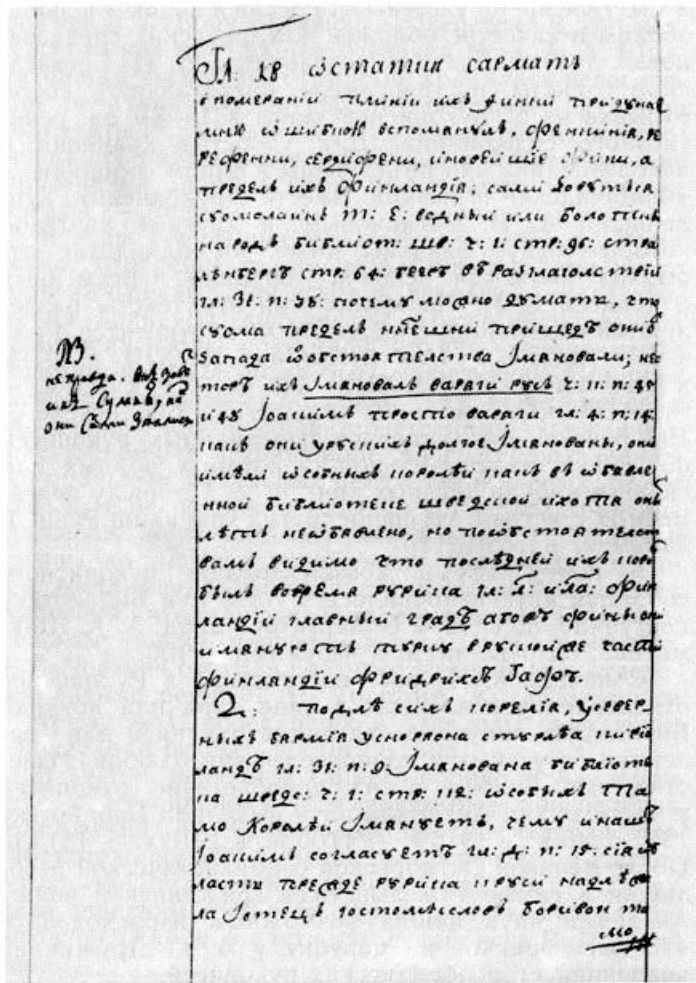 Гл: кв ѡстатик сармать
впомераніи плініи ихъ финни придунае
ѡшибкою вспомянулъ, Финнинія, ре
Рефенни, финни, а
пределъ ихъ Финландія, сами зовутся
суомолаинъ т: е: водный или болотенъ
народъ библиот: шв: ч: 1: стр: 96: стра
ленбергъ стр: 64: бееръ въ разглаголствіи
гл: 31: п: 38: почему можно думать, что
суома пределъ нѣшни пришедъ они въ
запада ѿ обстоятелства имяновали, нес
торъ ихъ имяновалъ варяги русь ч: 11: п: 45
и 48 Іоакимъ просто варяги гл: 4: п: 14:
какъ они урускихъ долгое имянованы, они
имѣли ѡсобныхъ королѣи какъ въ ѡбъявле
нной библиотеке шведской ихотя онъ
лѣтъ неѡбъявлено, но поѡбстоятелст
вамъ видимо что послѣдней ихъ коро
былъ вовремя рурика гл: л: и ла: Фин
ландіи главный градъ аборъ Финны
имянуютъ турку в руской же части
Финландіи Фридрихсъ Гафъ.
2: Подлѣ сихъ корелія, усевер
ныхъ бармія уснорона стурлѣа киріо
ландъ гл: 31: п: 9. имянована библиоте
ка шведс: ч: 1: стр: 112: ѡсобыхъ та
мо Королѣи имянуетъ, чему инашъ
Іоакимъ согласуетъ гл: д: п: 15: сія об
ласть прежде рурика круси надлѣжа
ла Іотецъ гостомысловъ боривои та
мо
NB.
неправда.
они сами